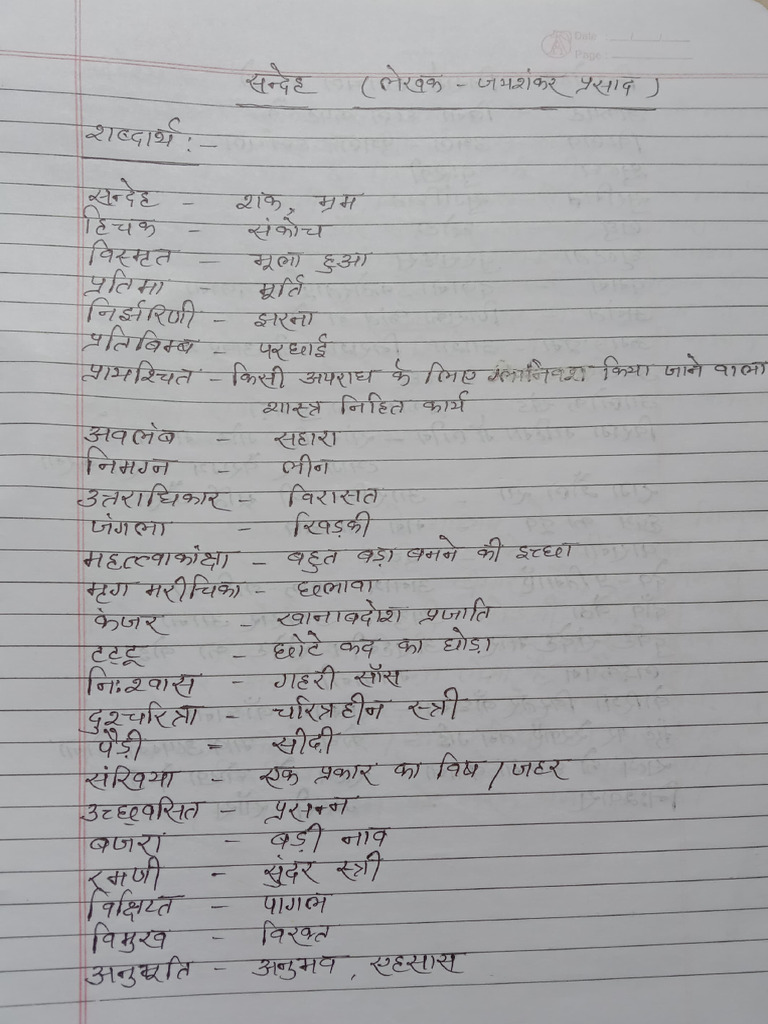 Date
Page
सन्देह (लेखक - जयशंकर प्रसाद)
शब्दार्थ :-
सन्देह - शक, भ्रम
हिचक - संकोच
विस्मृत - भूला हुआ
प्रतिमा - मूर्ति
निर्झरिणी - झरना
प्रतिबिम्ब - परछाई
प्रायश्चित - किसी अपराध के लिए ग्लानिवश किया जाने वाला
शास्त्र निहित कार्य
अवलंब - सहारा
निमग्न - लीन
उत्तराधिकार - विरासत
जंगला - खिड़की
महत्त्वाकांक्षा - बहुत बड़ा बनने की इच्छा
मृग मरीचिका - छलावा
कंजर - खानाबदोश प्रजाति
टट्टू - छोटे कद का घोड़ा
निःश्वास - गहरी साँस
दुश्चरित्रा - चरित्रहीन स्त्री
पैड़ी - सीढ़ी
संखिया - एक प्रकार का विष / जहर
उच्छ्वसित - प्रसन्न
बजरा - बड़ी नाव
रमणी - सुंदर स्त्री
विक्षिप्त - पागल
विमुख - विरक्त
अनुभूति - अनुभव, एहसास